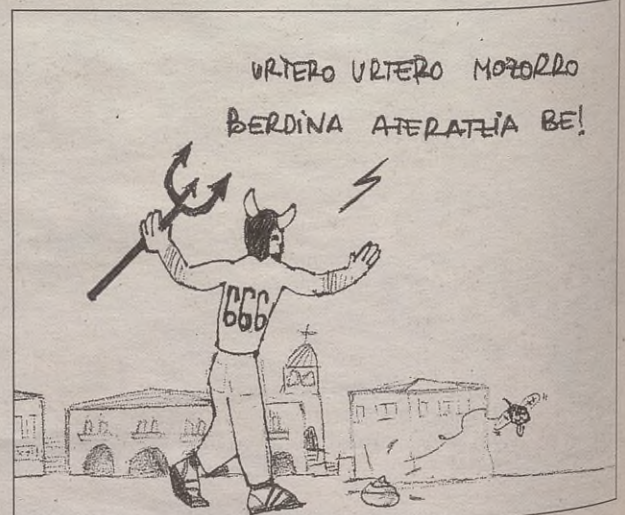 URTERO URTERO MOZORRO
BERDINA ATERATZIA BE!
666